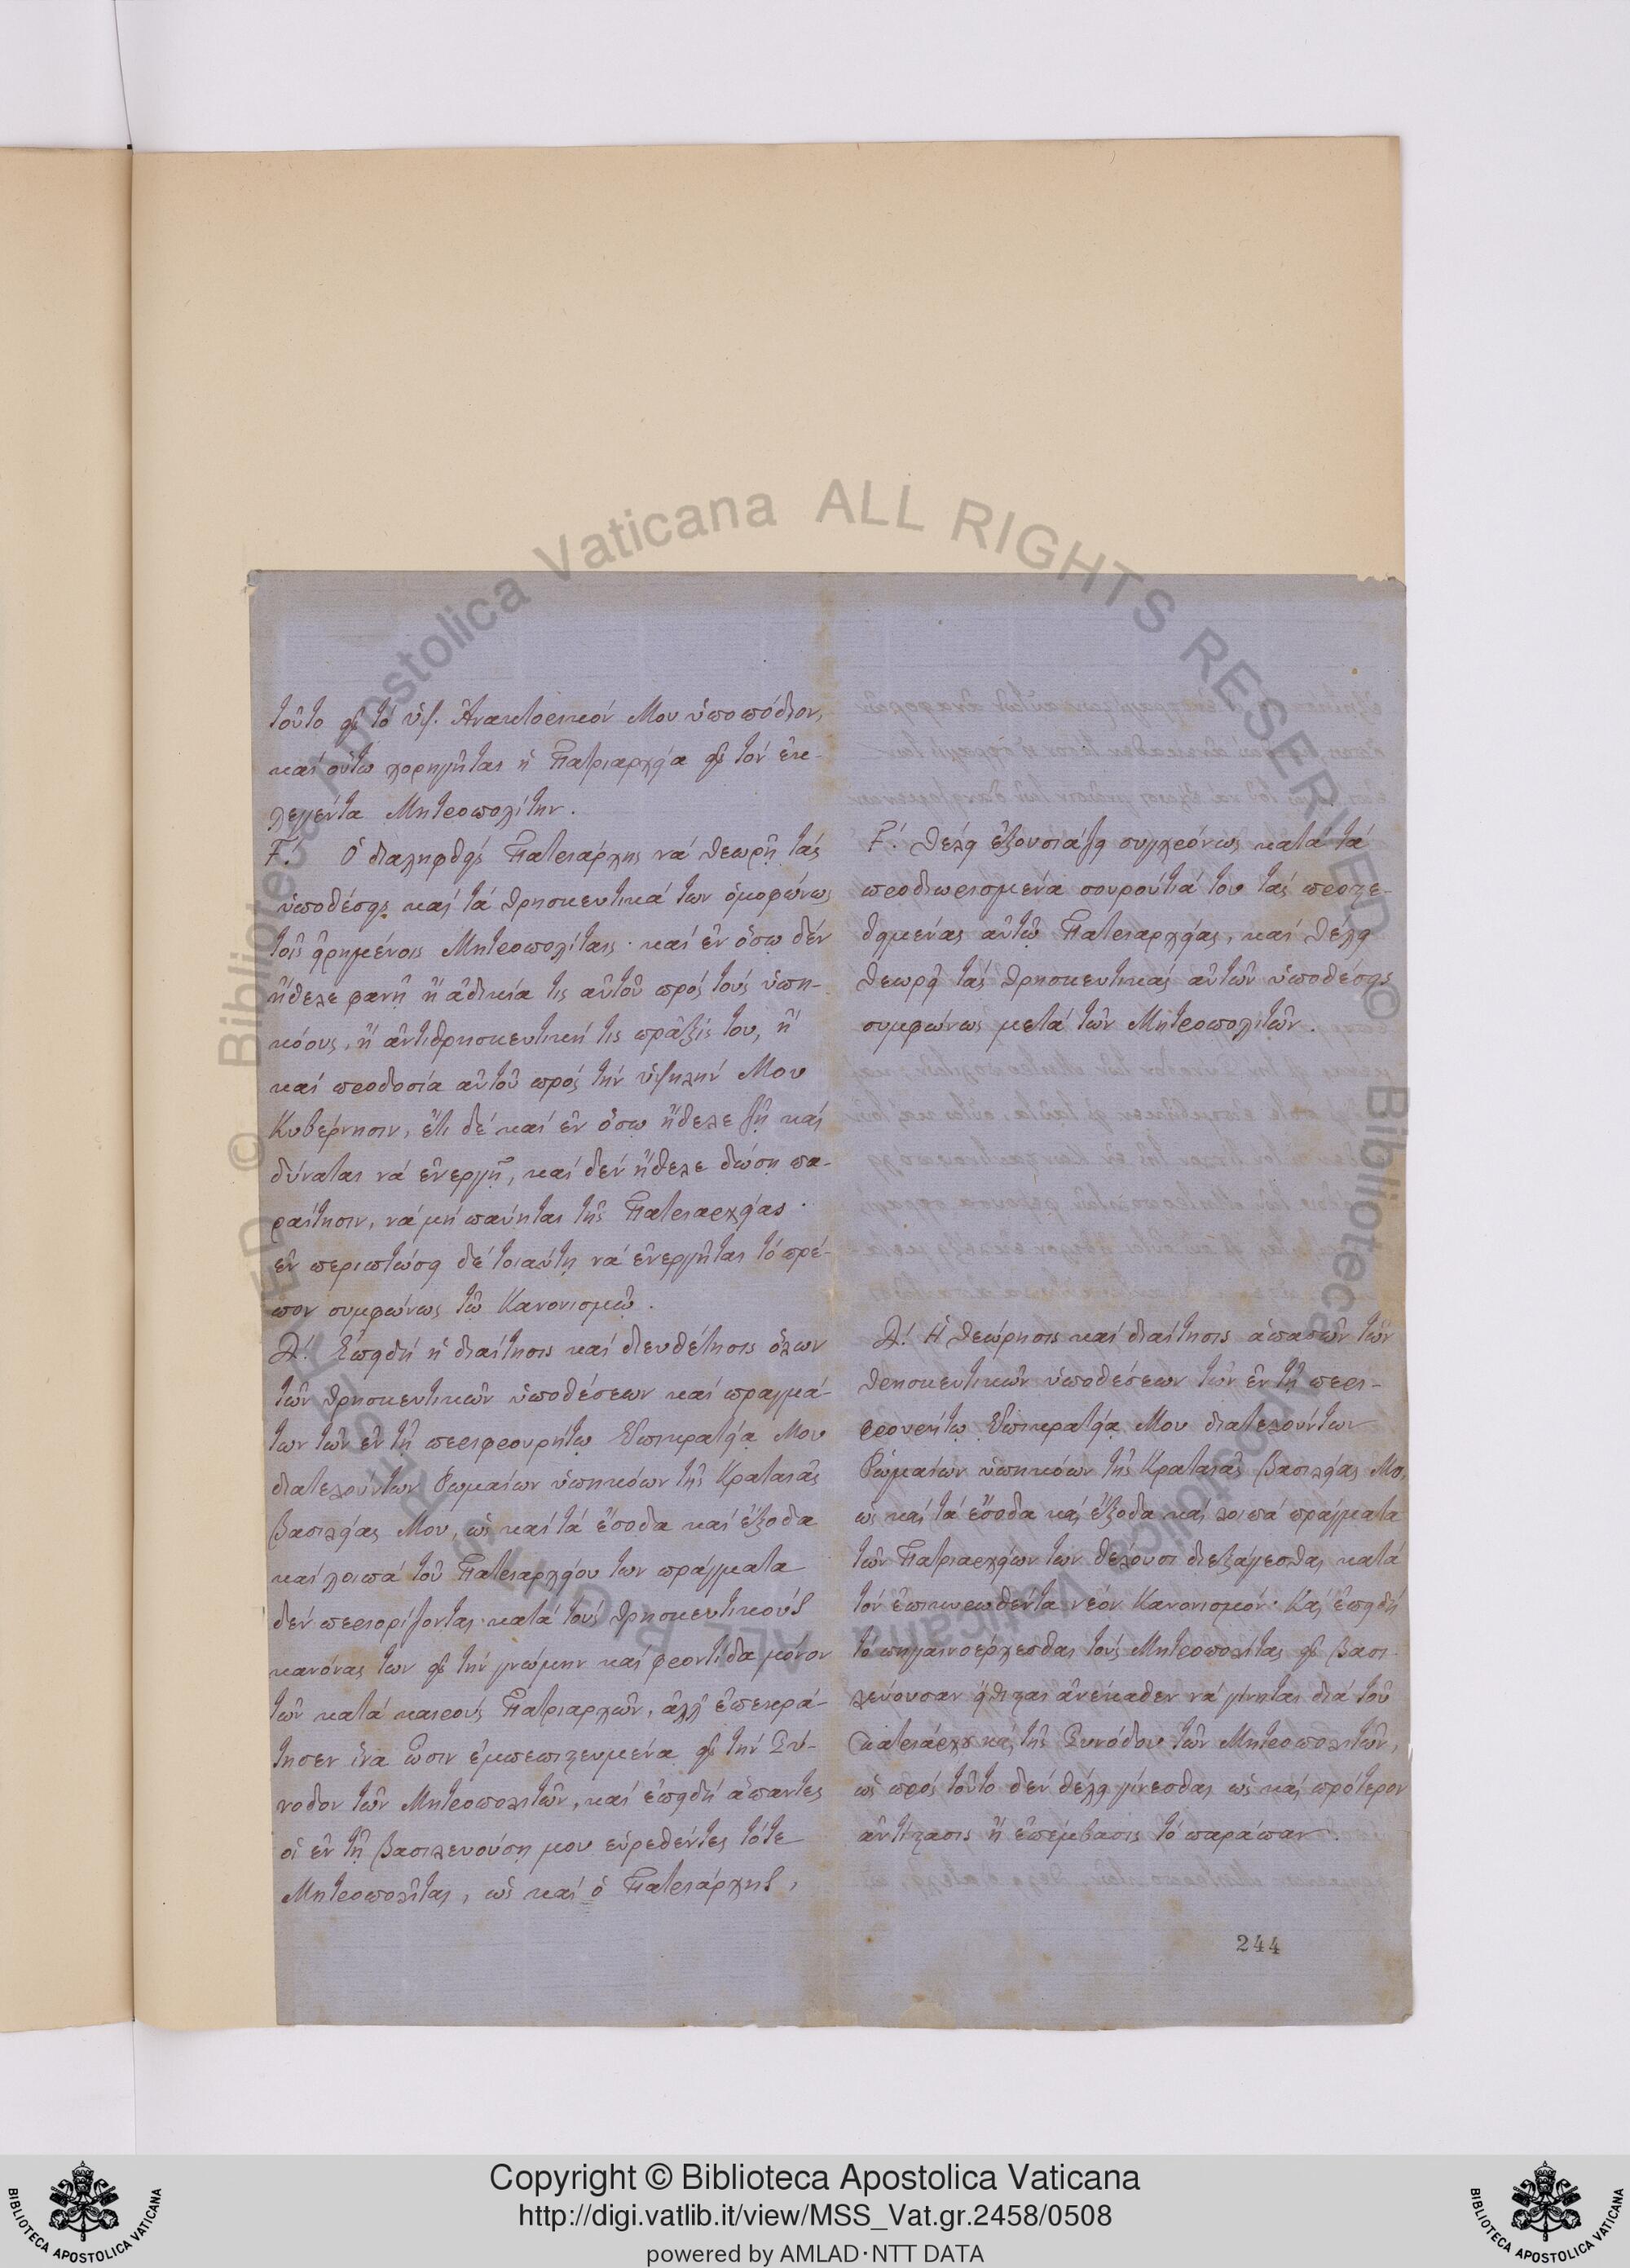 τοῦτο εἰς τό ὑψ. Ἀνακτορικόν Μου ὑποπόδιον,
καί οὕτω χορηγῆται ἡ Πατριαρχεία εἰς τόν ἐκ-
λεγέντα Μητροπολίτην.
Γ΄. Ὁ διαληφθείς Πατριάρχης νά θεωρῇ τάς
ὑποθέσεις καί τά θρησκευτικά των ὁμοφώνως
τοῖς εἰρημένοις Μητροπολίταις· καί ἐν ὅσῳ δέν
ἤθελε φανῇ ἤ ἀδικία τις αὐτοῦ πρός τούς ὑπη-
κόους, ἤ ἀντιθρησκευτική τις πρᾶξίς του, ἤ
καί προδοσία αὐτοῦ πρός τήν ὑψηλήν Μου
Κυβέρνησιν, ἔτι δέ καί ἐν ὅσῳ ἤθελε ζῇ καί
δύναται νά ἐνεργῇ, καί δέν ἤθελε δώσῃ πα-
ραίτησιν, νά μή παύηται τῆς Πατριαρχείας·
ἐν περιπτώσει δέ τοιαύτῃ νά ἐνεργῆται τό πρέ-
πον συμφώνως τῷ Κανονισμῷ.
Δ΄. Ἐπειδή ἡ διαίτησις καί διευθέτησις ὅλων
τῶν θρησκευτικῶν ὑποθέσεων καί πραγμά-
των τῶν ἐν τῇ περιφρουρήτῳ Ἐπικρατείᾳ Μου
διατελούντων Ῥωμαίων ὑπηκόων τῆς Κραταιᾶς
Βασιλείας Μου, ὡς καί τά ἔσοδα καί ἔξοδα
καί λοιπά τοῦ Πατριαρχείου των πράγματα
δέν περιορίζονται κατά τούς θρησκευτικούς
κανόνας των εἰς τήν γνώμην καί φροντίδα μόνον
τῶν κατά καιρούς Πατριαρχῶν, ἀλλ' ἐπεκρά-
τησεν ἵνα ὦσιν ἐμπεπιστευμένα εἰς τήν Σύ-
νοδον τῶν Μητροπολιτῶν, καί ἐπειδή ἅπαντες
οἱ ἐν τῇ βασιλευούσῃ μου εὑρεθέντες τότε
Μητροπολῖται, ὡς καί ὁ Πατριάρχης,
Γ΄. Θέλει ἐξουσιάζει συγχρόνως κατά τά
προδιωρισμένα σουρούτιά του τάς προστε-
θειμένας αὐτῷ Πατριαρχείας, καί θέλει
θεωρεῖ τάς θρησκευτικάς αὐτῶν ὑποθέσεις
συμφώνως μετά τῶν Μητροπολιτῶν.
Δ΄. Ἡ θεώρησις καί διαίτησις ἁπασῶν τῶν
θρησκευτικῶν ὑποθέσεων τῶν ἐν τῇ περι-
φρουρήτῳ Ἐπικρατείᾳ Μου διατελούντων
Ῥωμαίων ὑπηκόων τῆς Κραταιᾶς Βασιλείας Μου,
ὡς καί τά ἔσοδα καί ἔξοδα καί λοιπά πράγματα
τῶν Πατριαρχείων των θέλουσι διεξάγεσθαι κατά
τόν ἐπικυρωθέντα νέον Κανονισμόν· Καί ἐπειδή
τό πηγαινοέρχεσθαι τούς Μητροπολίτας εἰς βασι-
λεύουσαν εἴθισται ἀνέκαθεν νά γίνηται διά τοῦ
Πατριάρχου καί τῆς Συνόδου τῶν Μητροπολιτῶν,
ὡς πρός τοῦτο δέν θέλει γίνεσθαι ὡς καί πρότερον
ἀντίστασις ἤ ἐπέμβασις τό παράπαν.
244
© Biblioteca Apostolica Vaticana ALL RIGHTS RESERVED
Copyright © Biblioteca Apostolica Vaticana
http://digi.vatlib.it/view/MSS_Vat.gr.2458/0508
powered by AMLAD·NTT DATA
BIBLIOTECA APOSTOLICA VATICANA
BIBLIOTECA APOSTOLICA VATICANA